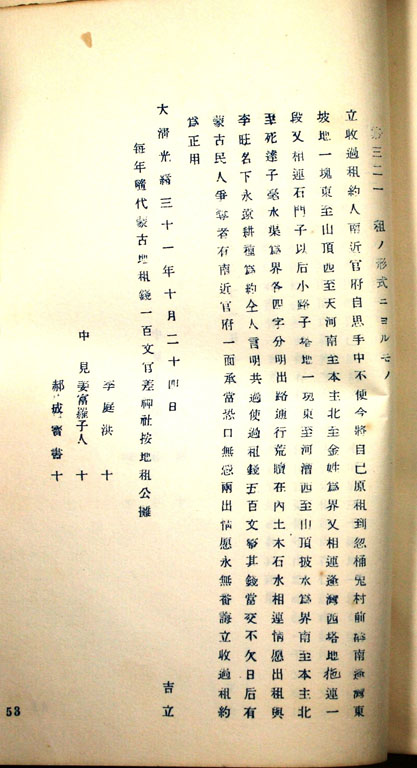 三二一 租ノ形式ニヨルモノ
立收過租約人南近官府自思手中不便今將自己原租到忽桶兎村前南邊灣東
坡地一塊東至山頂西至天河南至本主北至金姓爲界又相連邊灣西塔地拖連一
段又相連石門子以后小路子塔地一塊東至河漕西至山頂披水爲界南至本主北
至死達子毫水渠爲界各四字分明出路通行荒曠在內土木石水相連情愿出租與
李旺名下永遠耕種爲約仝人言明共過使過租錢五百文寧其錢當交不欠日后有
蒙古民人爭奪者有南近官府一面承當恐口無憑兩出情愿永無番誨立收過租約
爲正用
大淸光緖三十一年十月二十四日 吉立
每年隨代蒙古地租錢一百文官差神社按地租公攤
李庭洪十
中見姜富羅子人十
郝成寶書十
53